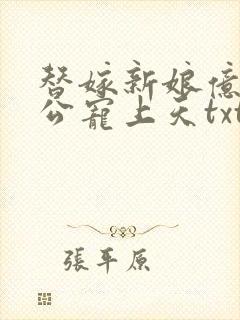 替嫁新娘億
公寵上天txt
張平原